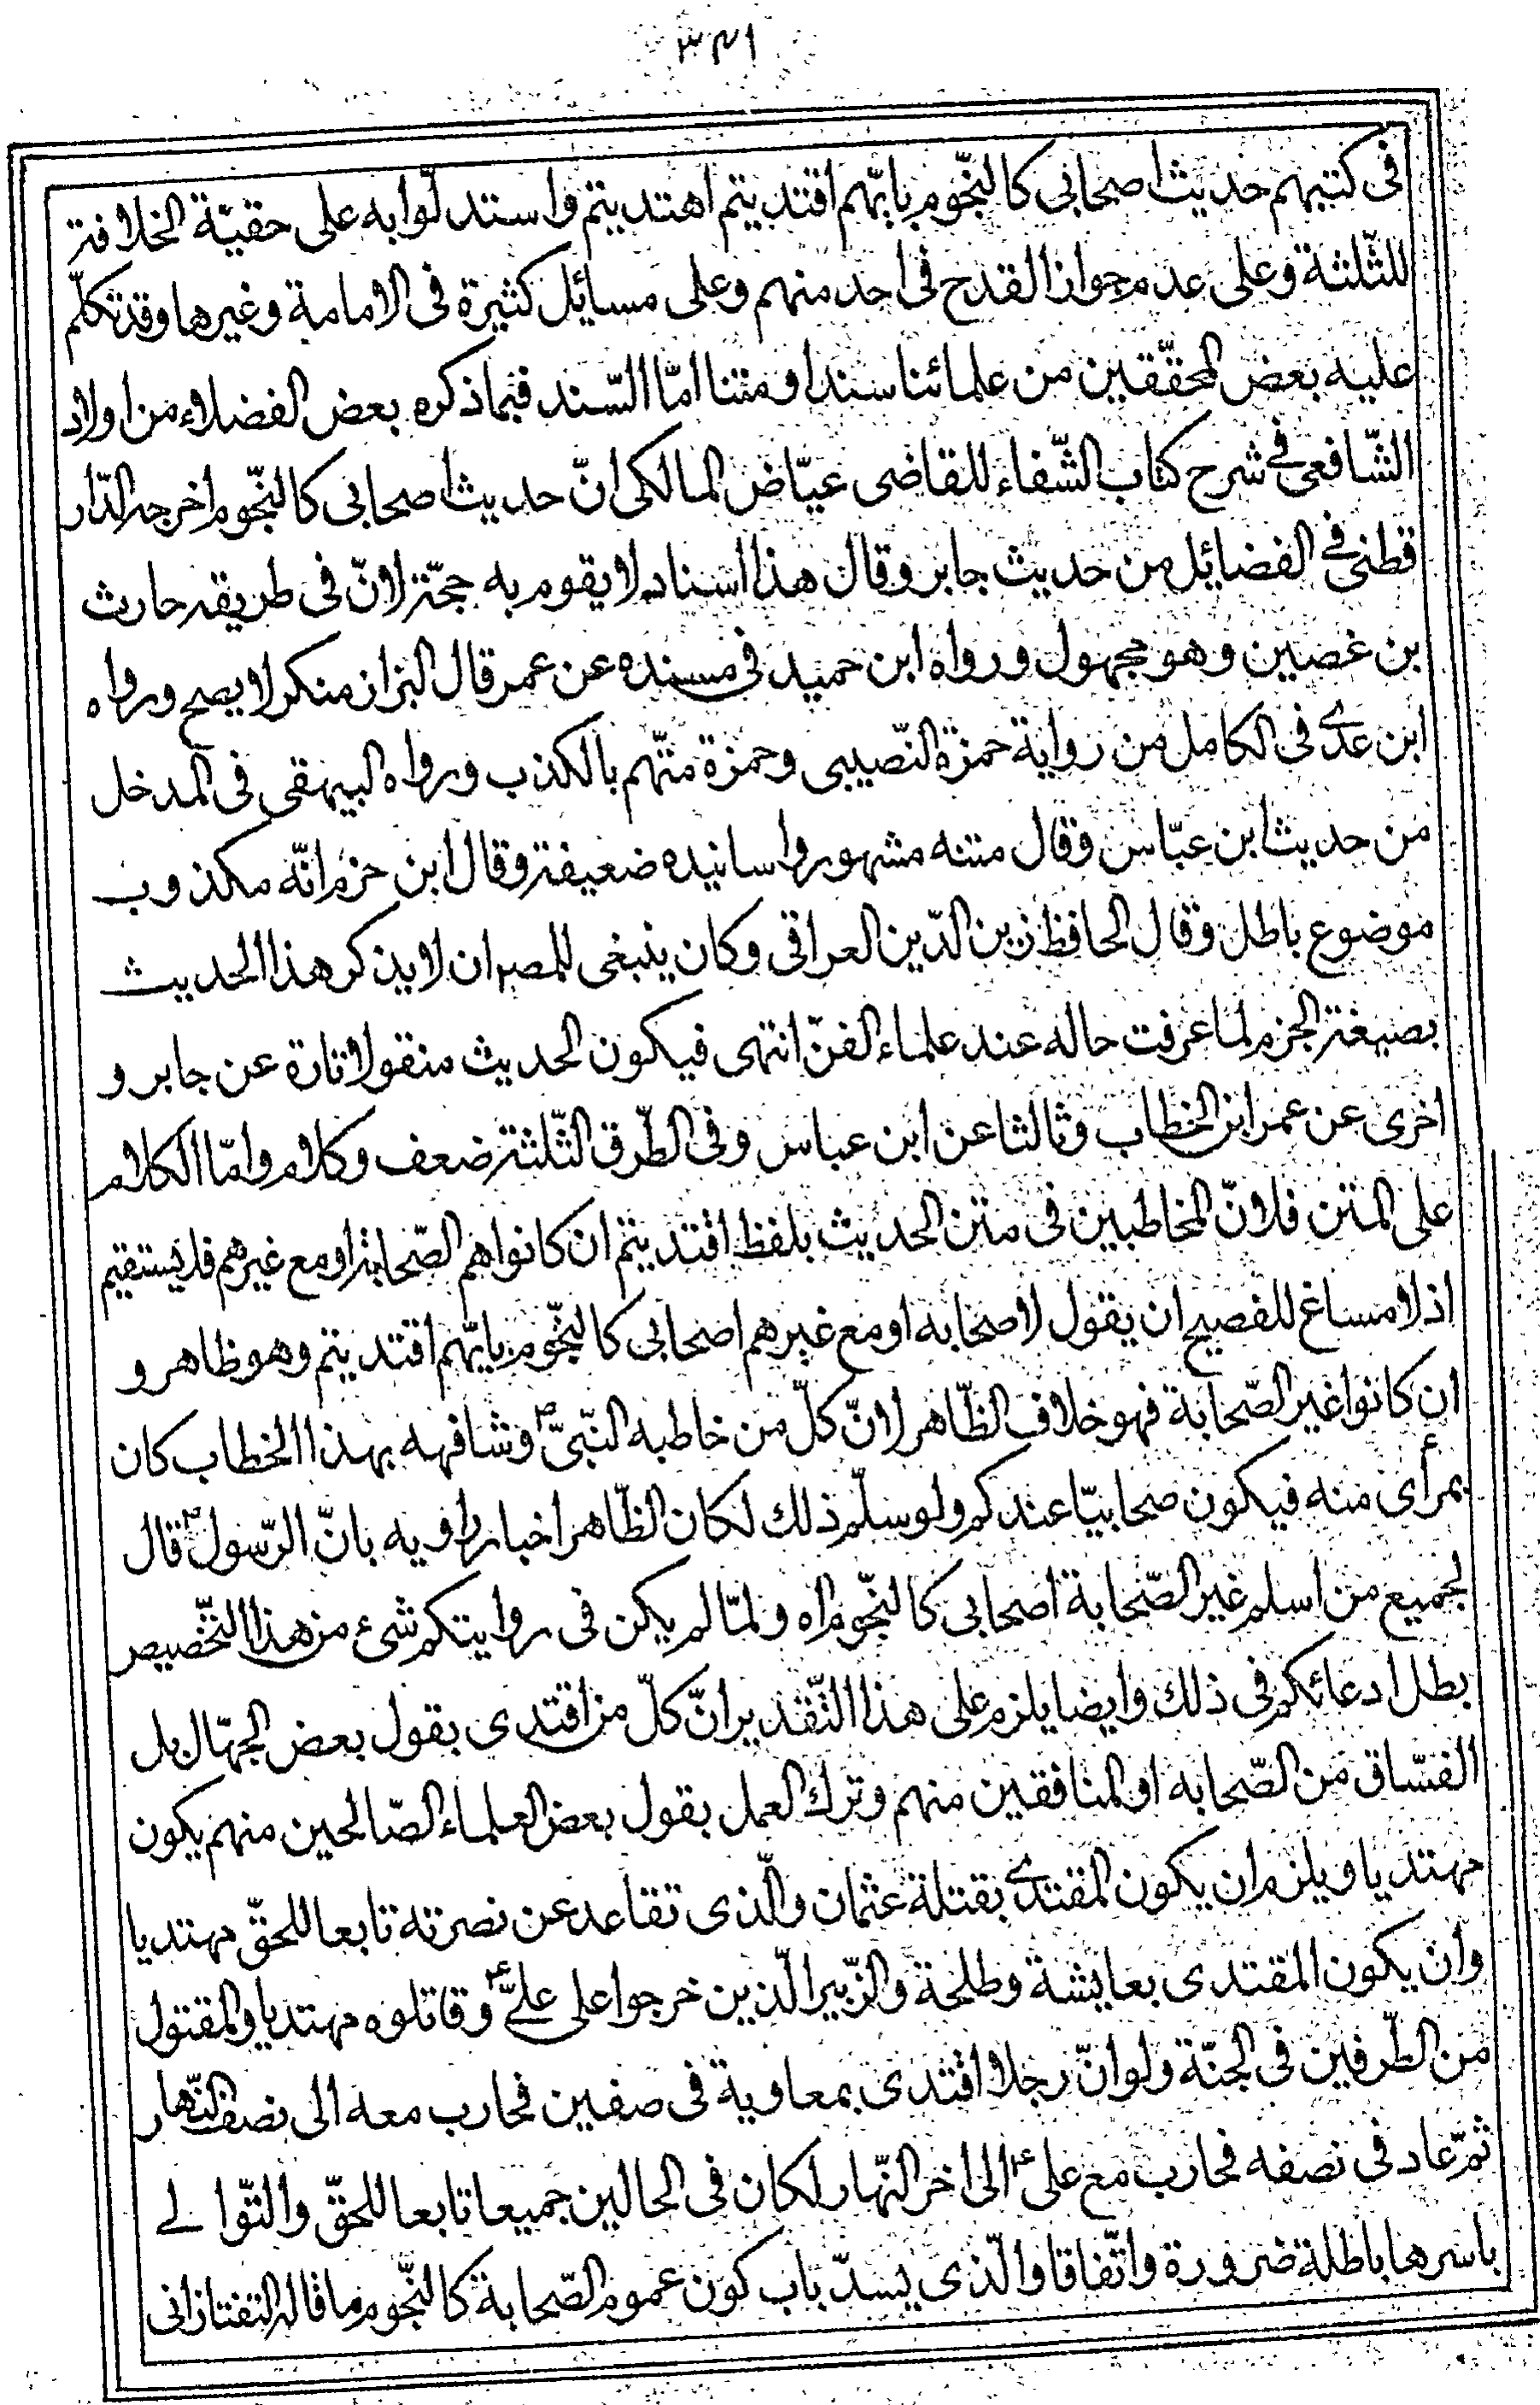 ٣٤١
فى كتبهم حديث اصحابى كالنّجوم بايّهم اقتديتم اهتديتم واستدلّوا به على حقيّة الخلافة
للثّلثة وعلى عدم جواز القدح فى احد منهم وعلى مسائيل كثيرة فى الامامة وغيرها وقد تكلّم
عليه بعض المحقّقين من علمائنا سندا ومتنا امّا السّند فبماذكره بعض الفضلاء من اولاد
الشّافعى فى شرح كتاب الشّفاء للقاضى عيّاض المالكى انّ حديث اصحابى كالنّجوم اخرجه الدّار
قطنى فى الفضائيل من حديث جابر وقال هذا اسناد لا يقوم به حجّة لانّ فى طريقه حارث
بن غصين وهو مجهول ورواه ابن حميد فى مسنده عن عمر قال البزان منكر لا يصح ورواه
ابن عدى فى الكامل من رواية حمزة النّصيبى وحمزة متّهم بالكذب ورواه البيهقى فى المدخل
من حديث ابن عبّاس وقال متنه مشهور واسانيده ضعيفة وقال ابن حزم انّه مكذوب
موضوع باطل وقال الحافظ زين الدّين العراقى وكان ينبغى للمصر ان لا يذكر هذا الحديث
بصيغة الجزم لما عرفت حاله عند علماء الفنّ انتهى فيكون الحديث منقولا تارة عن جابر و
اخرى عن عمر ابن الخطاب وثالثا عن ابن عباس وفى الطّرق الثّلثة ضعف وكلام وامّا الكلام
على المتن فلانّ المخاطبين فى متن الحديث بلفظ اقتديتم ان كانوا هم الصّحابة او مع غيرهم فلا يستقيم
اذ لا مساغ للفصيح ان يقول لاصحابه او مع غيرهم اصحابى كالنّجوم بايّهم اقتديتم وهو ظاهر و
ان كانوا غير الصّحابة فهو خلاف الظّاهر لانّ كلّ من خاطبه النّبىّ ص وشافهه بهذا الخطاب كان
بمرأى منه فيكون صحابيّا عندكم ولو سلّم ذلك لكان الظّاهر اخبار راويه بانّ الرّسول ص قال
لجميع من اسلم غير الصّحابة اصحابى كالنّجوم اه ولمّا لم يكن فى روايتكم شئ من هذا التّخصيص
بطل ادعائكم فى ذلك وايضا يلزم على هذا التّقدير انّ كلّ من اقتدى بقول بعض الجهّال بل
الفسّاق من الصّحابه او المنافقين منهم وترك العمل بقول بعض العلماء الصّالحين منهم يكون
مهتديا ويلزم ان يكون المقتدى بقتلة عثمان والّذى تقاعد عن نصرته تابعا للحقّ مهتديا
وان يكون المقتدى بعايشة وطلحة والزّبير الّذين خرجوا على علىّ ع وقاتلوه مهتديا والمقتول
من الطّرفين فى الجنّة ولو انّ رجلا اقتدى بمعاوية فى صفين فحارب معه الى نصف النّهار
ثمّ عاد فى نصفه فحارب مع على ع الى اخر النّهار لكان فى الحالين جميعا تابعا للحقّ والتّوالے
باسرها باطلة ضرورة واتّفاقا والّذى يسدّ باب كون عموم الصّحابة كالنّجوم ما قاله التفتازانى